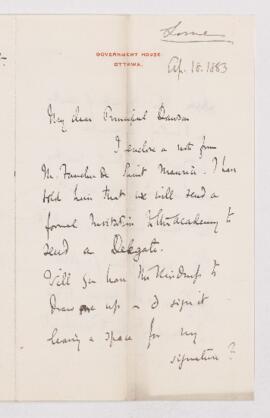 Lorne
GOVERNMENT HOUSE.
OTTAWA.
Ap. 18. 1883
My dear Principal Dawson
I enclose a note from
Mr. Faucher de Saint Maurice. I have
told him that we will send a
formal Invitation to the Academy to
send a Delegate.
Will you have the Kindness to
draw one up - & sign it
leaving a space for my
signature?